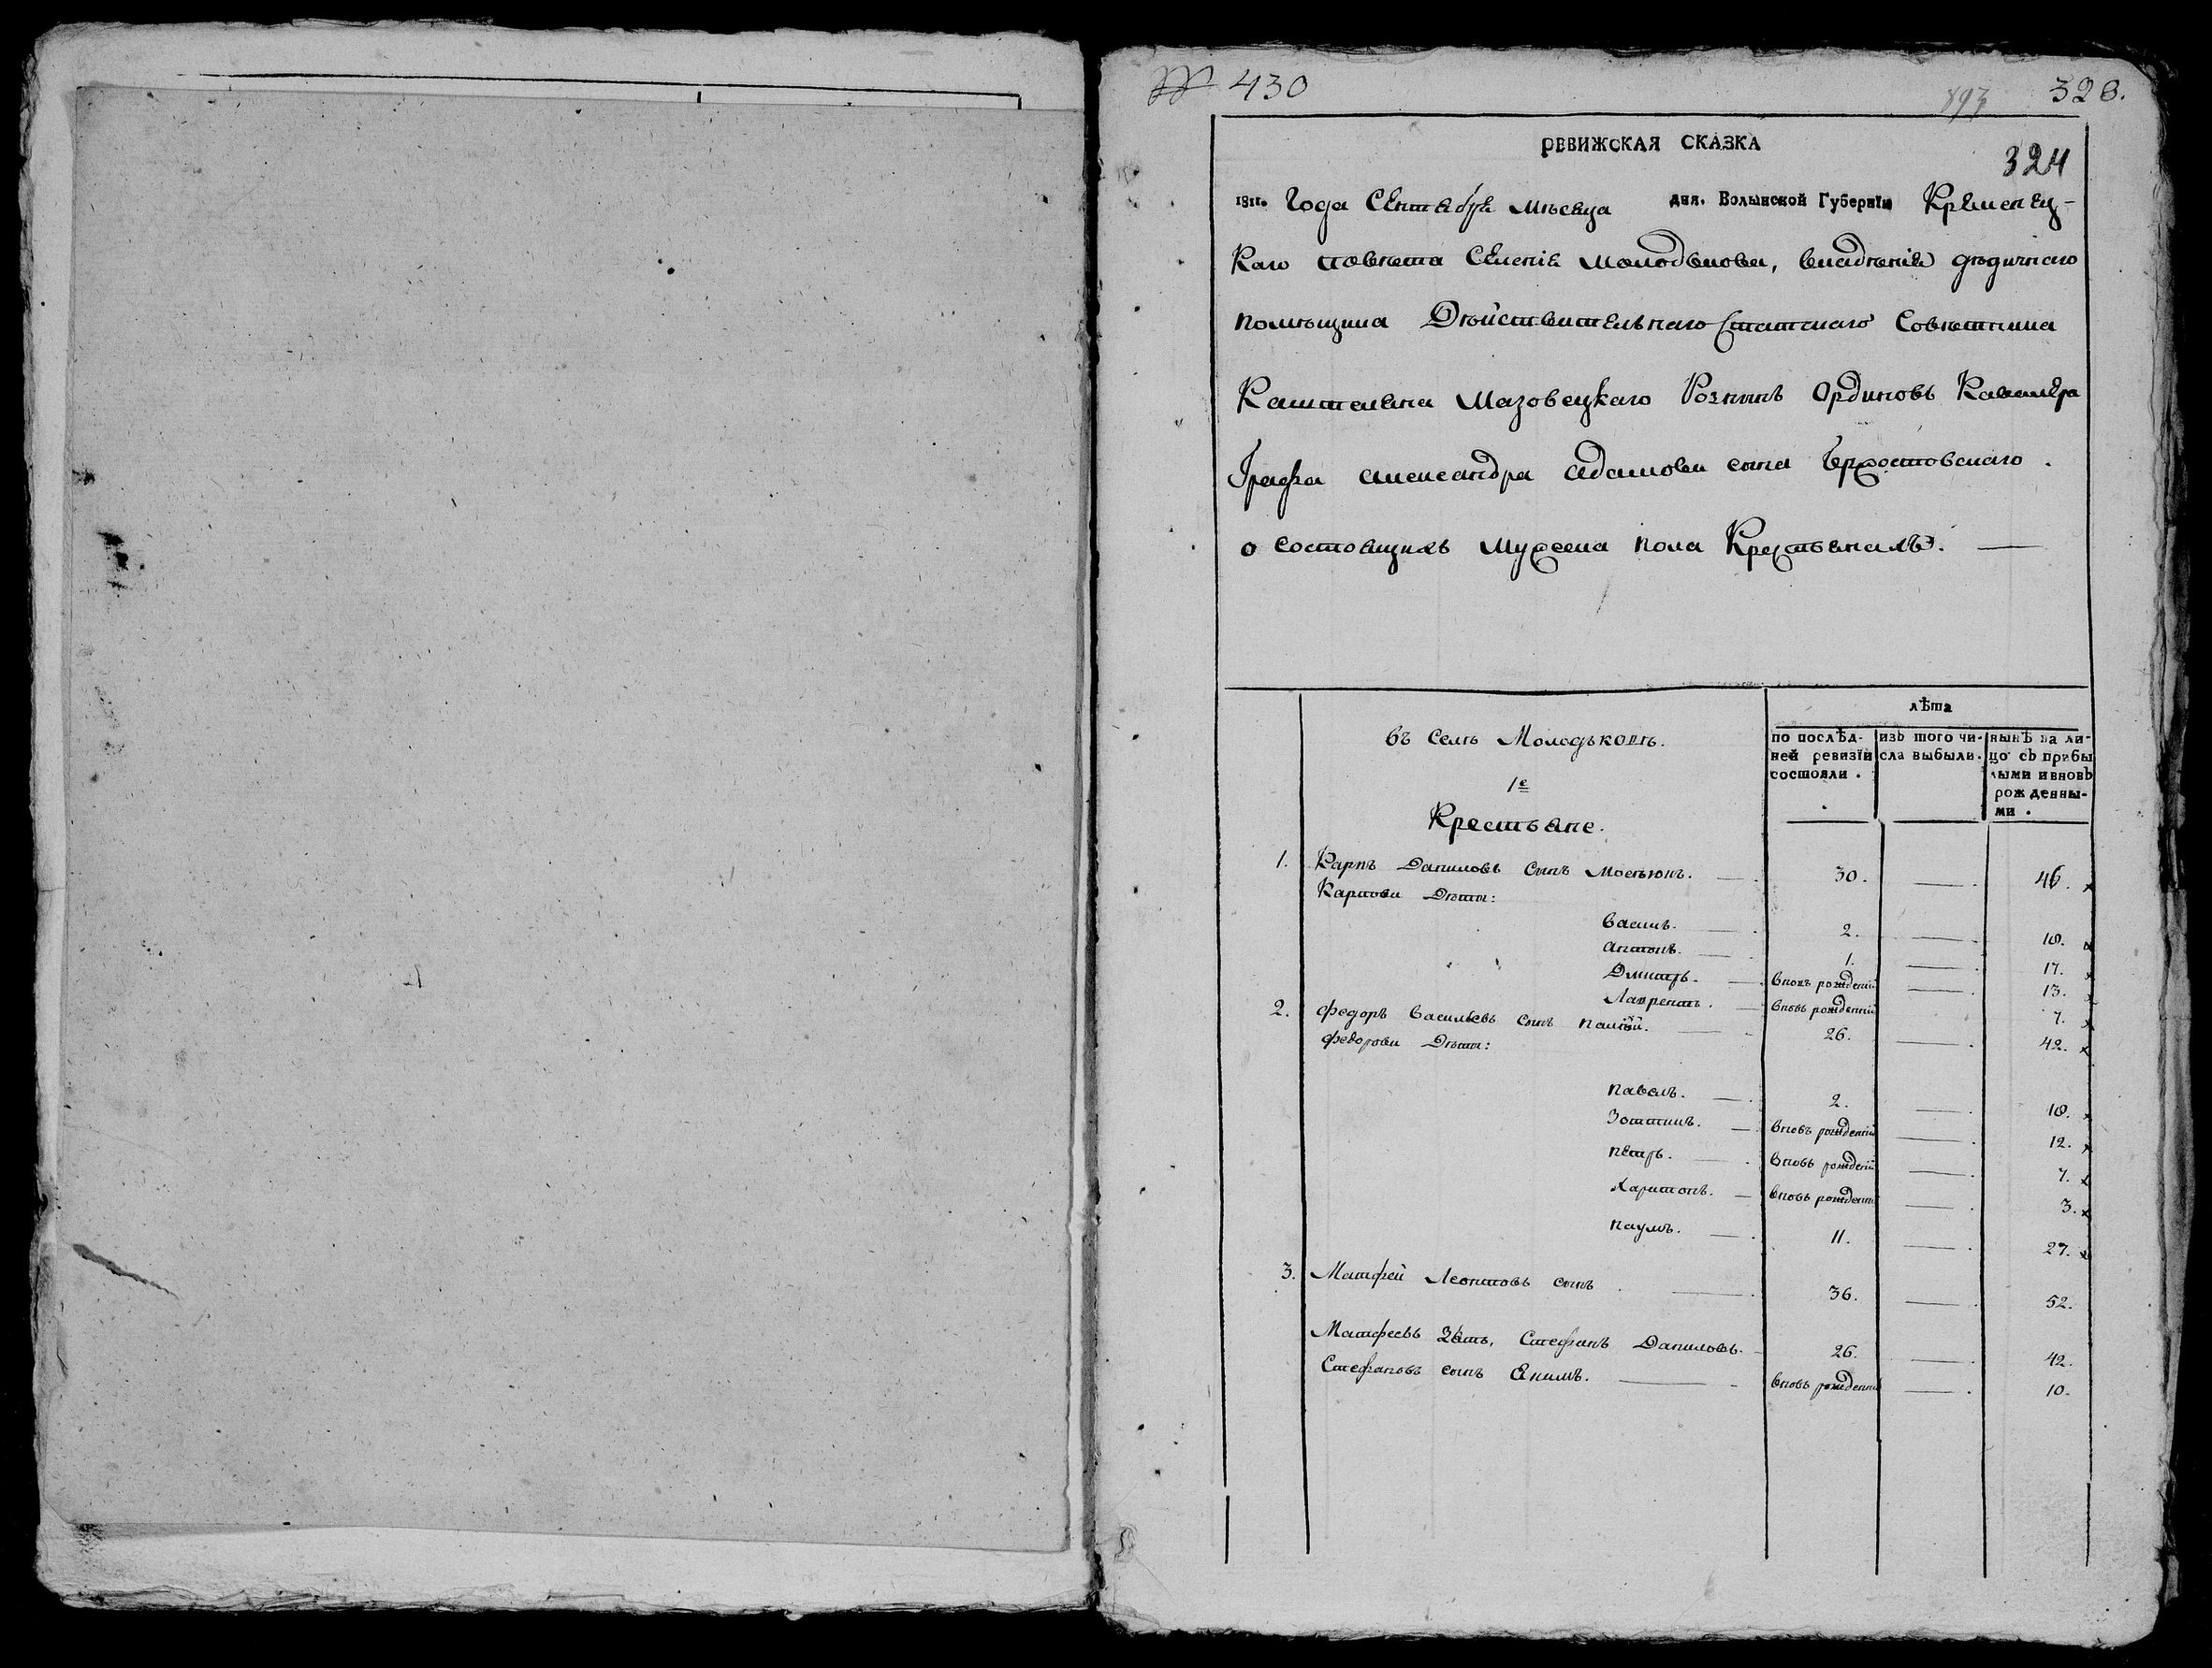 № 430
893
326.
РЕВИЖСКАЯ СКАЗКА
324
1811го Года Сентября мѣсяца дня. Волынской Губернїи Кременец-
каго повѣта Селенія Молодькова, владѣнія дѣдичнаго
помѣщика Дѣйствительнаго Статскаго Совѣтника
Каштеляна Мазовецкаго Розныхъ Ординовъ Кавалера
Графа Александра Адамова сына
о состоящихъ Мужеска пола Крестьянахъ.
лѣта
въ Селѣ Молодьковѣ.
по послѣд-
ней ревизїи
состояли.
изъ того чи-
сла выбыли.
нынѣ на ли-
цо съ прибы
лыми и вновь
рожденны-
ми.
1е
Крестьяне.
1. Карпъ Даниловъ Сынъ Мосѣюкъ. — 30. — 46.
Карпови Дѣти:
Василь. — 2. — 18.
Антонъ. — 1. — 17.
Дмитръ. — вновь рожденій — 13.
Лаврентъ. — вновь рожденній 7.
2. Федоръ Васильевъ Сынъ Палій. — 26. — 42.
Федорови Дѣти:
Павелъ. — 2. — 18.
Зоттикъ. — вновь рожденій — 12.
Петръ. — вновь рожденій — 7.
Харитонъ. — вновь рожденни — 3.
Наумъ. — 11. — 27.
3. Матфей Леонтовъ сынъ — 36. — 52.
Матфеевъ Зять, Стефанъ Даниловъ. 26. — 42.
Стефановъ сынъ Якимъ. — вновь рожденни — 10.